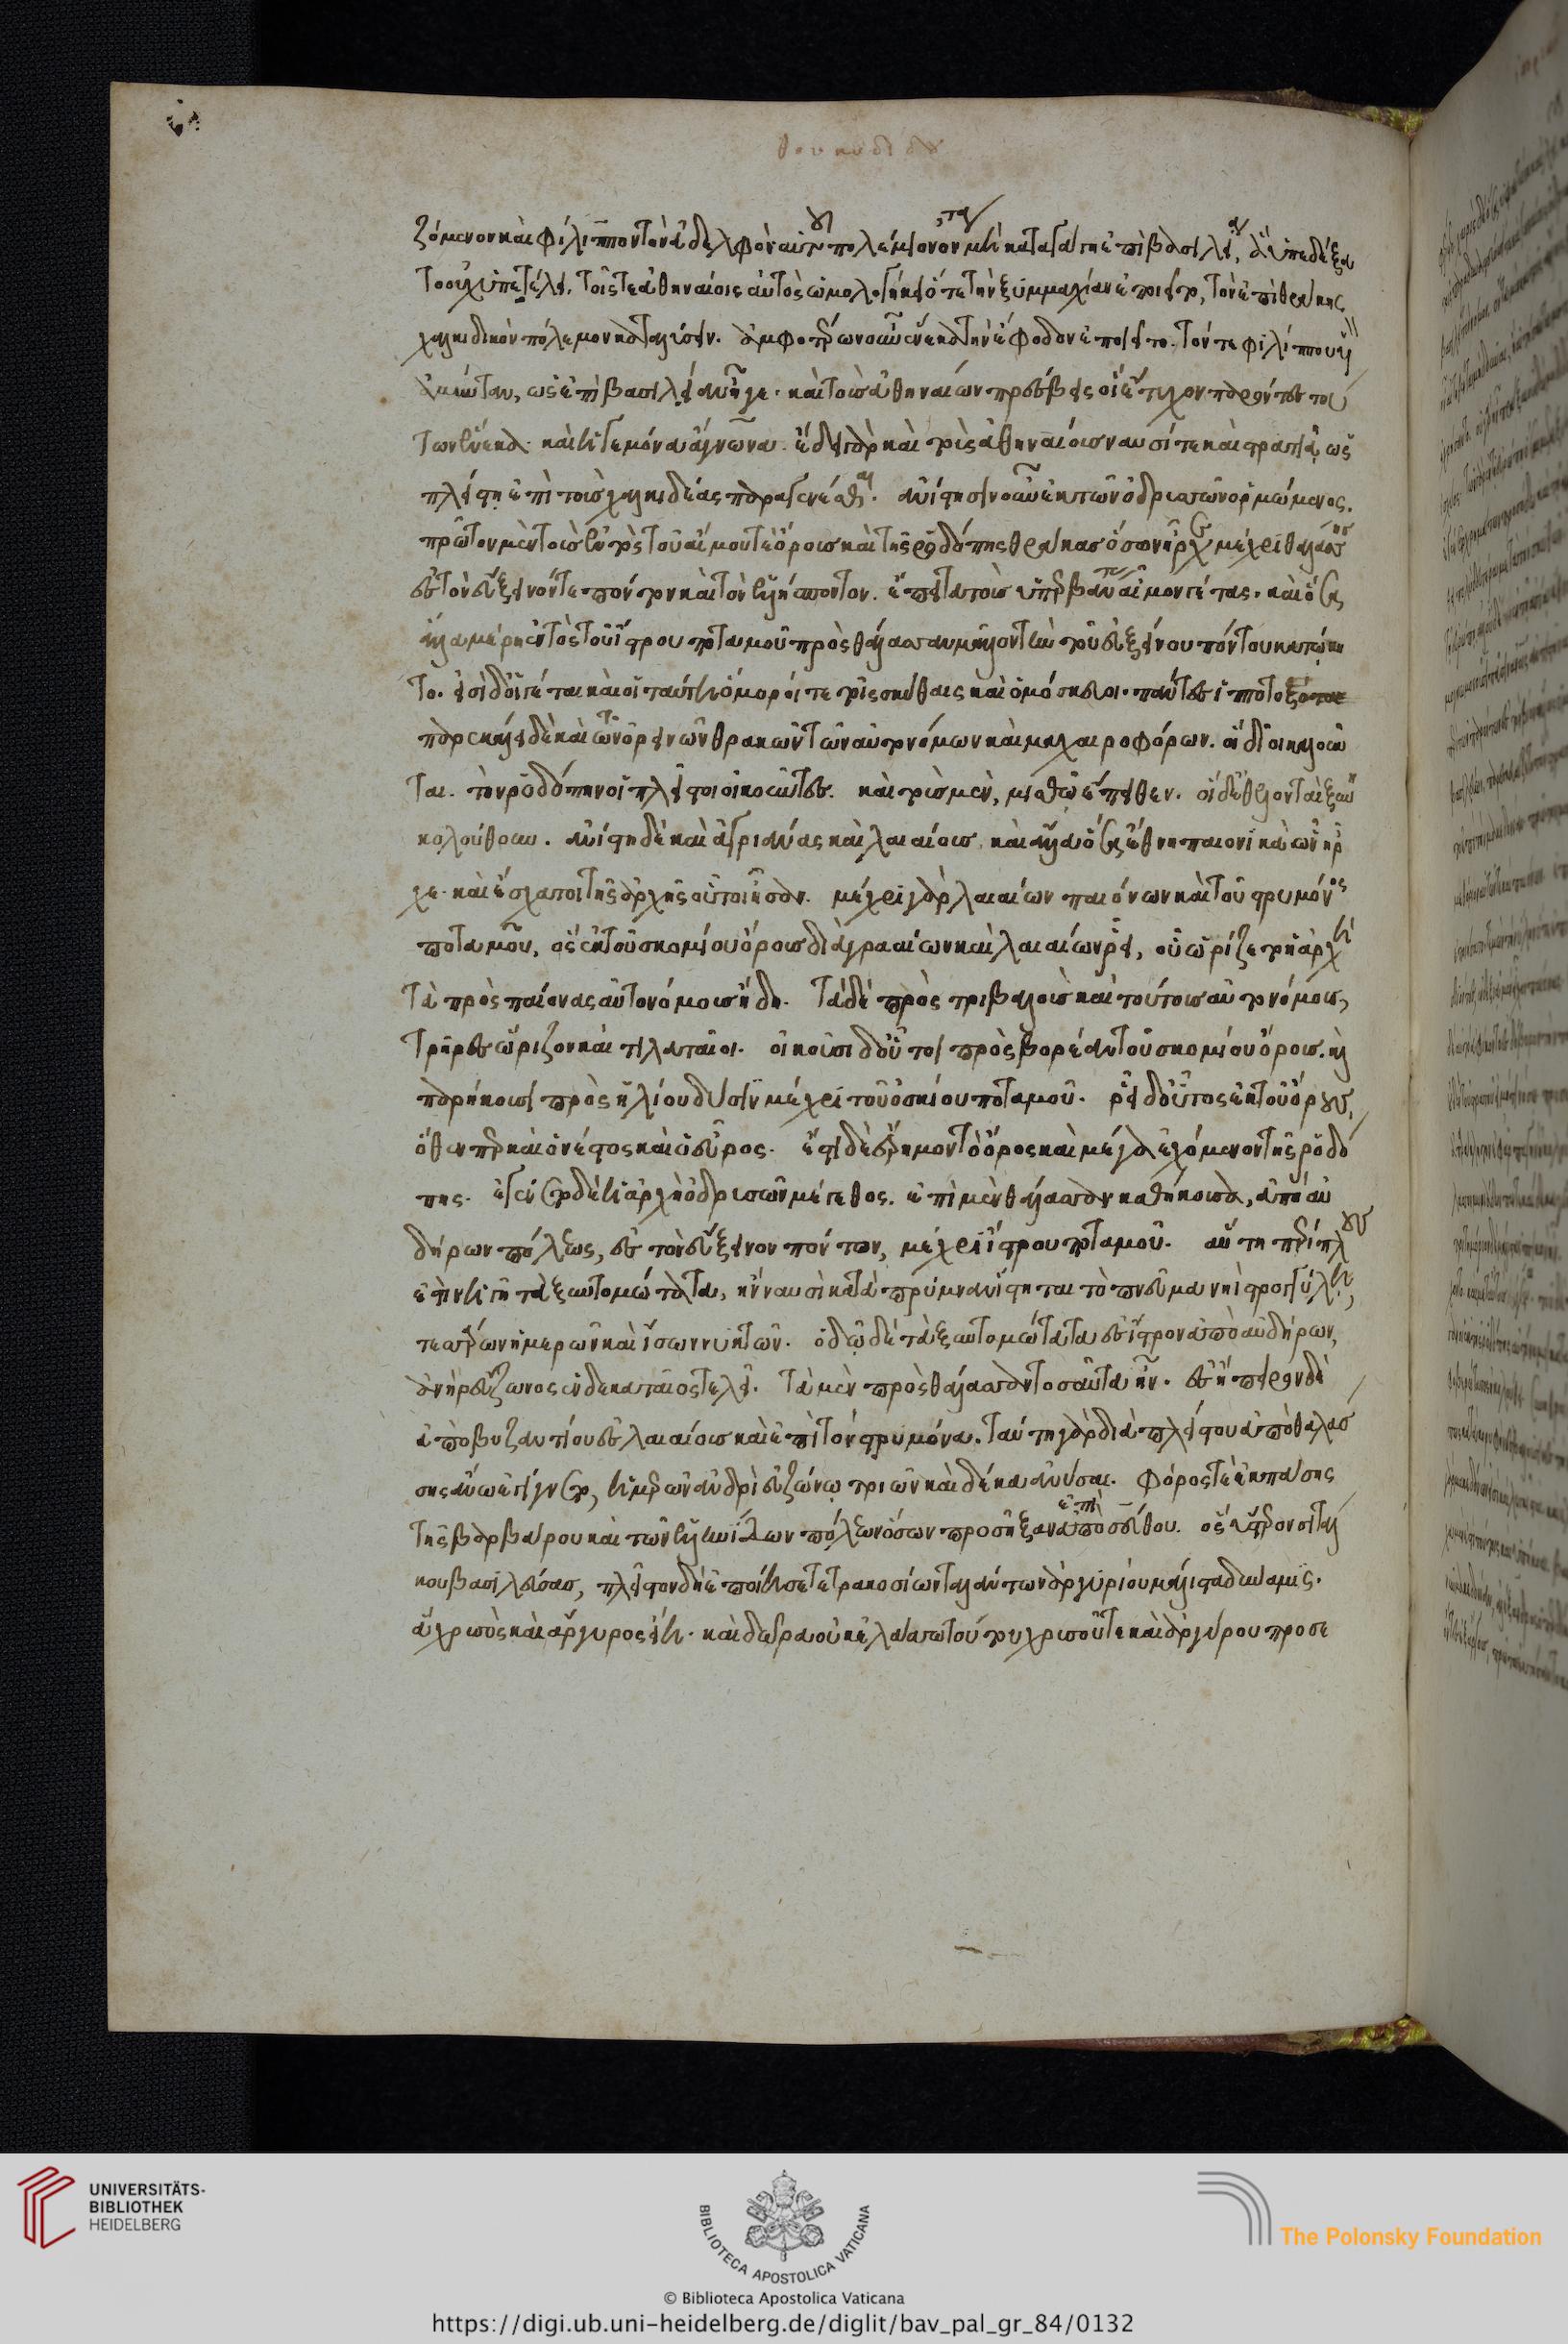 θουκυδίδου
ζόμενον καὶ φίλιππον τὸν ἀδελφὸν αὐτοῦ πολέμιον ὄντα μὴ καταγάγη ἐπὶ βασιλεία, ἃ ὑπεδέξα
το οὐχ ὑπετέλει. τοῖς τε ἀθηναίοις αὐτὸς ὡμολογήκει ὅτε τὴν ξυμμαχίαν ἐποιεῖτο, τὸν ἐπὶ θράκης
χαλκιδικὸν πόλεμον καταλύσειν. ἀμφοτέρων οὖν ἕνεκα τὴν ἔφοδον ἐποιεῖτο. τόν τε φιλίππου υἱ
ὸν ἀμύνταν, ὡς ἐπὶ βασιλεία ἦγε. καὶ τοὺς ἀθηναίων πρέσβεις οἳ ἔτυχον παρόντες τού
των ἕνεκα. καὶ ἡγεμόνα ἄγνωνα. ἔδει γὰρ καὶ τοὺς ἀθηναίους ναυσί τε καὶ στρατιᾷ ὡς
πλείστη ἐπὶ τοὺς χαλκιδέας παραγενέσθαι. ἀνίστησιν οὖν ἐκ τῶν ὀδρυσῶν ὁρμώμενος.
πρῶτον μὲν τοὺς ἐντὸς τοῦ αἵμου τε ὄρους καὶ τῆς ῥοδόπης θράκας ὅσων ἦρχε μέχρι θαλάσσης
ἐς τὸν εὔξεινόν τε πόντον καὶ τὸν ἑλλήσποντον. ἔπειτα τοὺς ὑπερβάντι αἷμον γέτας. καὶ ὅσα
ἄλλα μέρη ἐντὸς τοῦ ἴστρου ποταμοῦ πρὸς θάλασσαν μᾶλλον τὴν τοῦ εὐξείνου πόντου κατώκη
το. εἰσὶ δ' οἱ γέται καὶ οἱ ταύτη ὅμοροί τε τοῖς σκύθαις καὶ ὁμόσκευοι. πάντες ἱπποτοξόται
παρεκάλει δὲ καὶ τῶν ὀρεινῶν θρακῶν τῶν αὐτονόμων καὶ μαχαιροφόρων. οἳ δῖοι καλοῦν
ται. τὴν ῥοδόπην οἱ πλεῖστοι οἰκοῦντες. καὶ τοὺς μὲν, μισθῷ ἔπειθεν. οἱ δ' ἐθελονταὶ ξυνη
κολούθουν. ἀνίστη δὲ καὶ ἀγριᾶνας καὶ λαιαίους. καὶ ἄλλα ὅσα ἔθνη παιονικὰ ὧν ἦρ
χε. καὶ ἔσχατοι τῆς ἀρχῆς οὗτοι ἦσαν. μέχρι γὰρ λαιαίων παιόνων καὶ τοῦ στρυμόνος
ποταμοῦ, ὃς ἐκ τοῦ σκομίου ὄρους διὰ γρααίων καὶ λαιαίων ῥεῖ, οὗ ὡρίζετο ἡ ἀρχὴ
τὰ πρὸς παίονας αὐτονόμους ἤδη. τὰ δὲ πρὸς τριβαλοὺς καὶ τούτους αὐτονόμους,
τρῆρες ὥριζον καὶ τιλαταῖοι. οἰκοῦσι δ' οὗτοι πρὸς βορέαν τοῦ σκομίου ὄρους. καὶ
παρήκουσι πρὸς ἡλίου δύσιν μέχρι τοῦ ὀσκίου ποταμοῦ. ῥεῖ δ' οὗτος ἐκ τοῦ ὄρους,
ὅθεν περ καὶ ὁ νέστος καὶ ὁ εὗρος. ἔστι δὲ ἔρημον τὸ ὄρος καὶ μέγα ἐχόμενον τῆς ῥοδό
πης. ἐγένετο δὲ ἡ ἀρχὴ ὀδρυσῶν μέγεθος. ἐπὶ μὲν θάλασσαν καθήκουσα, ἀπὸ ἀβ
δήρων πόλεως, ἐς τὸν εὔξεινον πόντον, μέχρι ἴστρου ποταμοῦ. αὕτη περίπλους
ἐστὶν ἡ γῆ τὰ ξυντομώτατα, ἢν ναυσὶ κατὰ πρύμναν ἵστηται τὸ πνεῦμα νηὶ στρογγύλη,
τεσσάρων ἡμερῶν καὶ ἴσων νυκτῶν. ὁδῷ δὲ τὰ ξυντομώτατα ἐς ἴστρον ἀπὸ ἀβδήρων,
ἀνὴρ εὔζωνος ἑνδεκαταῖος τελεῖ. τὰ μὲν πρὸς θάλασσαν τοσαύτη ἦν. ἐς ἤπειρον δὲ
ἀπὸ βυζαντίου ἐς λαιαίους καὶ ἐπὶ τὸν στρυμόνα. ταύτη γὰρ διὰ πλείστου ἀπὸ θαλάσ
σης ἄνω ἐγίγνετο, ἡμερῶν ἀνδρὶ εὐζώνῳ τριῶν καὶ δέκα ἀνύσαι. φόρος τε ἐκ πάσης
τῆς βαρβάρου καὶ τῶν ἑλληνίδων πόλεων ὅσων προσῆξαν ἀπὸ ἐπὶ σεύθου. ὃς ὕστερον σιτάλ
κου βασιλεύσας, πλεῖστον δὴ ἐποίησε τετρακοσίων ταλάντων ἀργυρίου μάλιστα δύναμις.
ἃ χρυσὸς καὶ ἄργυρος εἴη. καὶ δῶρα οὐκ ἐλάσσω τούτου χρυσοῦ τε καὶ ἀργύρου προσε
UNIVERSITÄTS-
BIBLIOTHEK
HEIDELBERG
BIBLIOTECA APOSTOLICA VATICANA
The Polonsky Foundation
© Biblioteca Apostolica Vaticana
https://digi.ub.uni-heidelberg.de/diglit/bav_pal_gr_84/0132